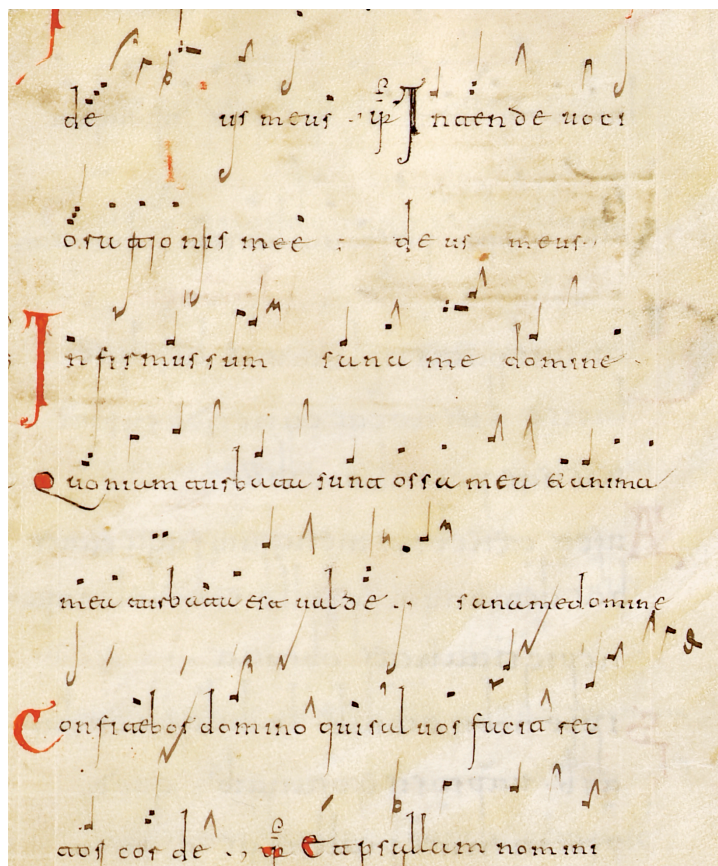 de us meus ., Intende uoci
orationis mee : deus meus
Infirmus sum sana me domine
Quoniam turbata sunt ossa mea et anima
mea turbata est ualde ., sana me domine
Confitebor domino qui saluos facit rec
tos cor de ., Et psallam nomini